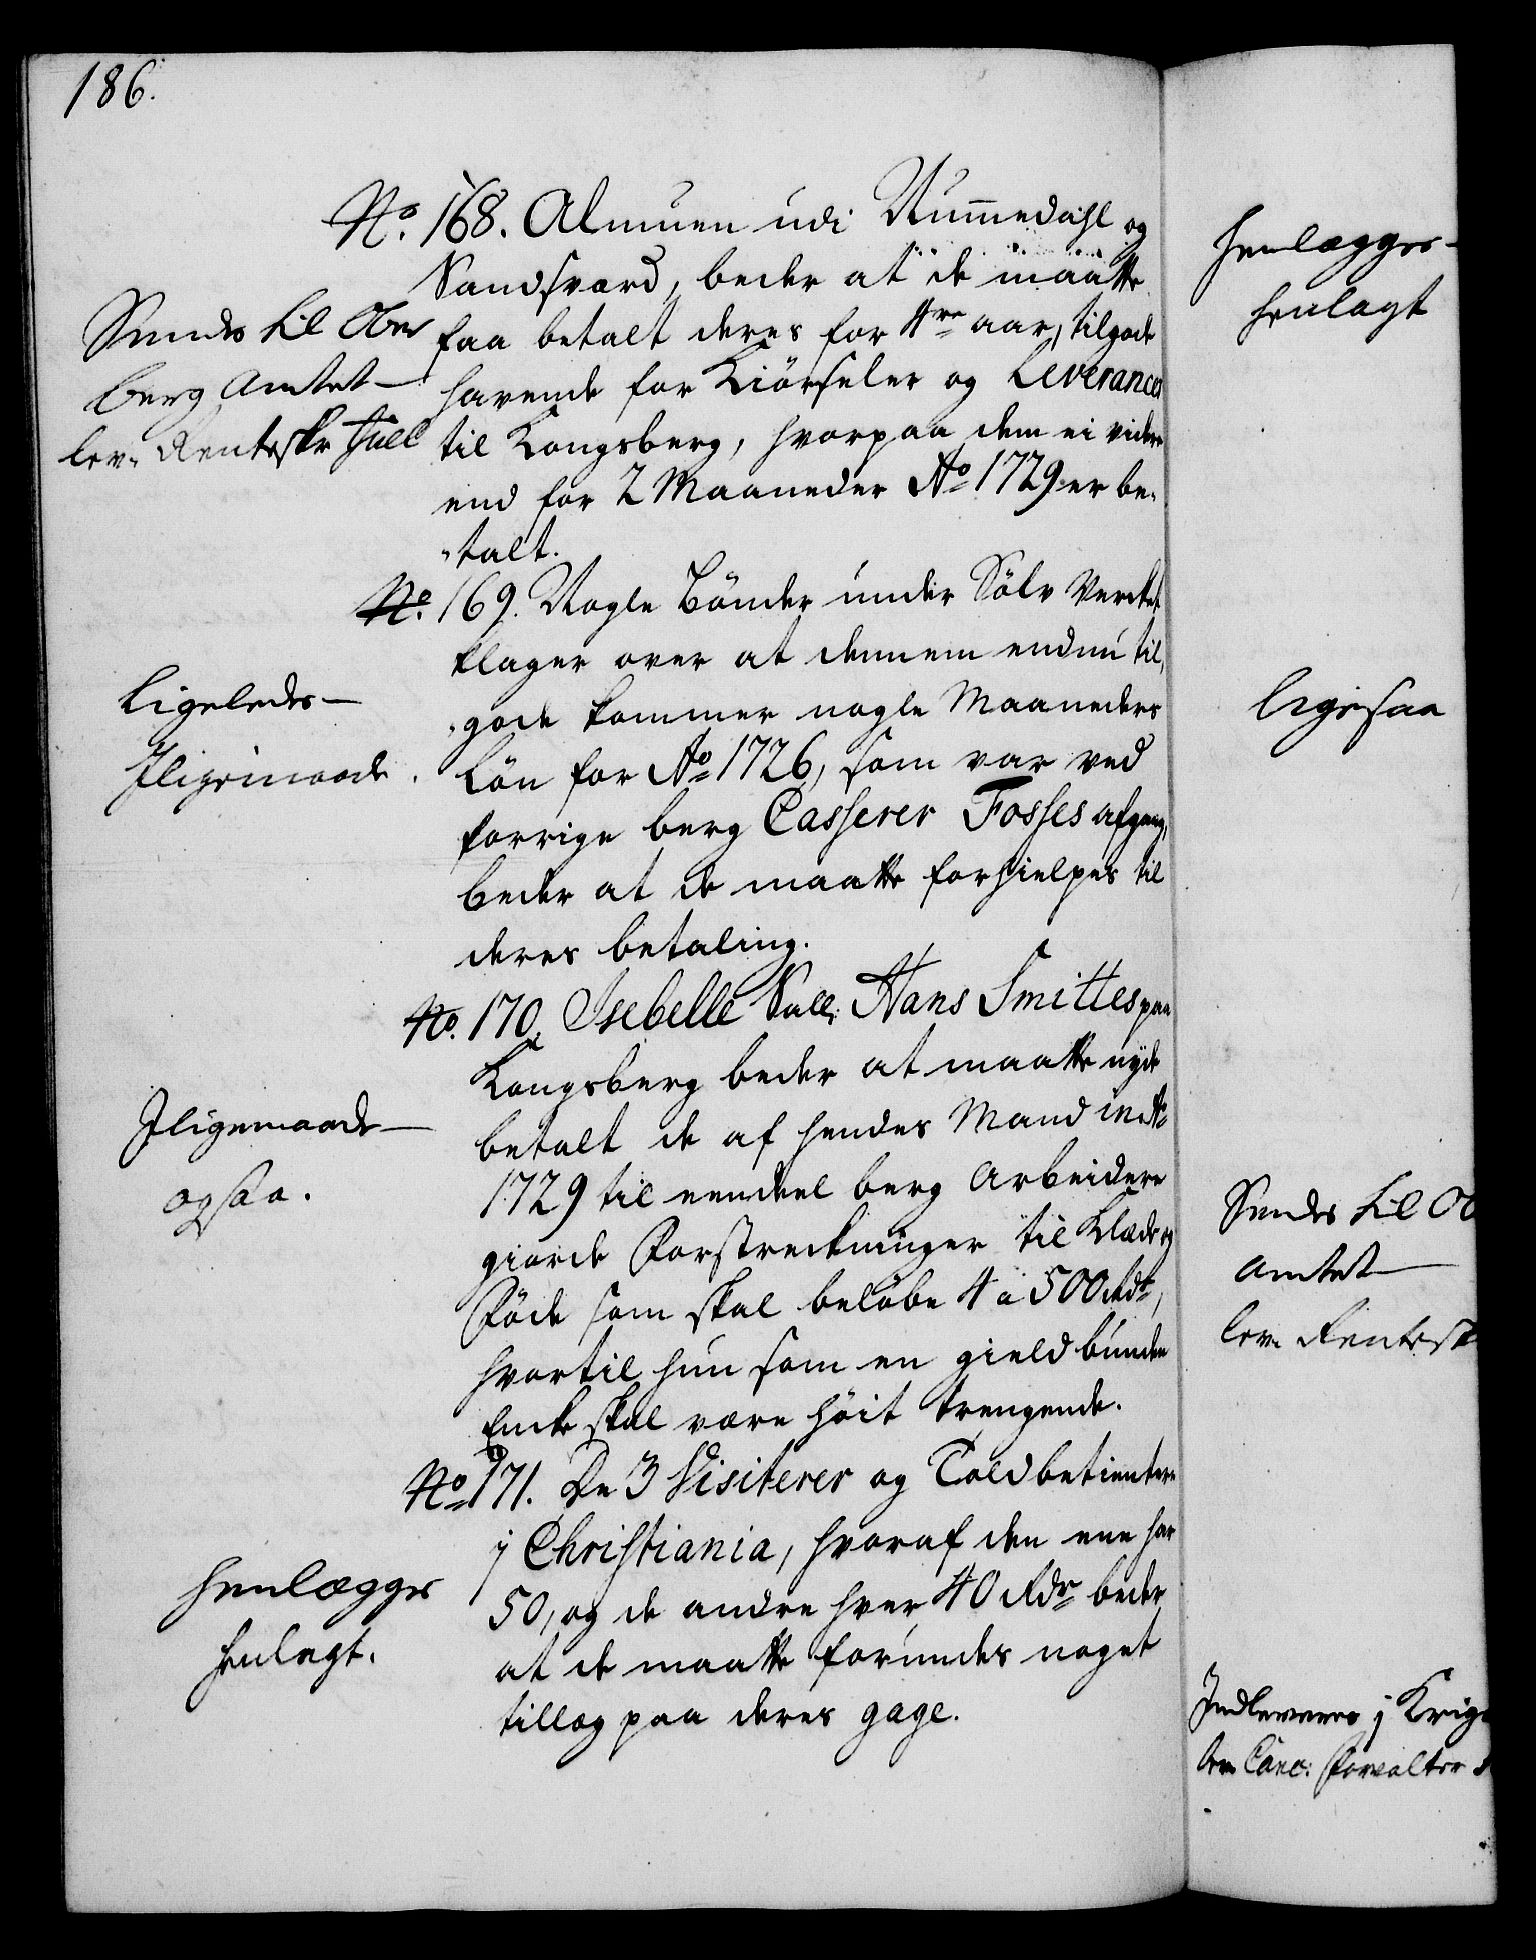 186.
No. 168. Almuen udi Nummedahl og
Sandsværd, beder at de maatte
faa betalt deres for 4re aar, tilgode
havende for Kiörseler og Leverancer
til Kongsberg, hvorpaa dem ei videre
end for 2 Maaneder Ao 1729 er be-
talt.
Sendes til Ober
berg Amtet
lev. Renteskr Juel
No. 169. Nogle Bönder under Sölv Verket
klager over at dennem endnu til,
gode kommer nogle Maaneders
Lön for Ao 1726, som var ved
forrige berg Casserer Fosses afgang,
beder at de maatte forhielpes til
deres betaling.
Ligeledes
Iligemaade.
No. 170. Isebelle Sall. Hans Smittes paa
Kongsberg beder at maatte nyde
betalt de af hendes Mand in Ao
1729 til eendeel berg Arbeidere
giorde Forstreckninger til Klæde og
Föde som skal belöbe 4 a 500 Rdr,
hvortil hun som en gield bunden
Encke skal være höit trengende.
Iligemaade
ogsaa.
No 171. De 3 Visiterer og Toldbetientere
j Christiania, hvoraf den ene har
50, og de andre hver 40 Rdr beder
at de maatte forundes noget
tillæg paa deres gage.
Henlægges
henlagt.
Henlægges
henlagt
ligesaa
Sendes til Ob
Amtet
lev. Rentesk
Indleveres j Krigs
lev. Canc: Forvalter